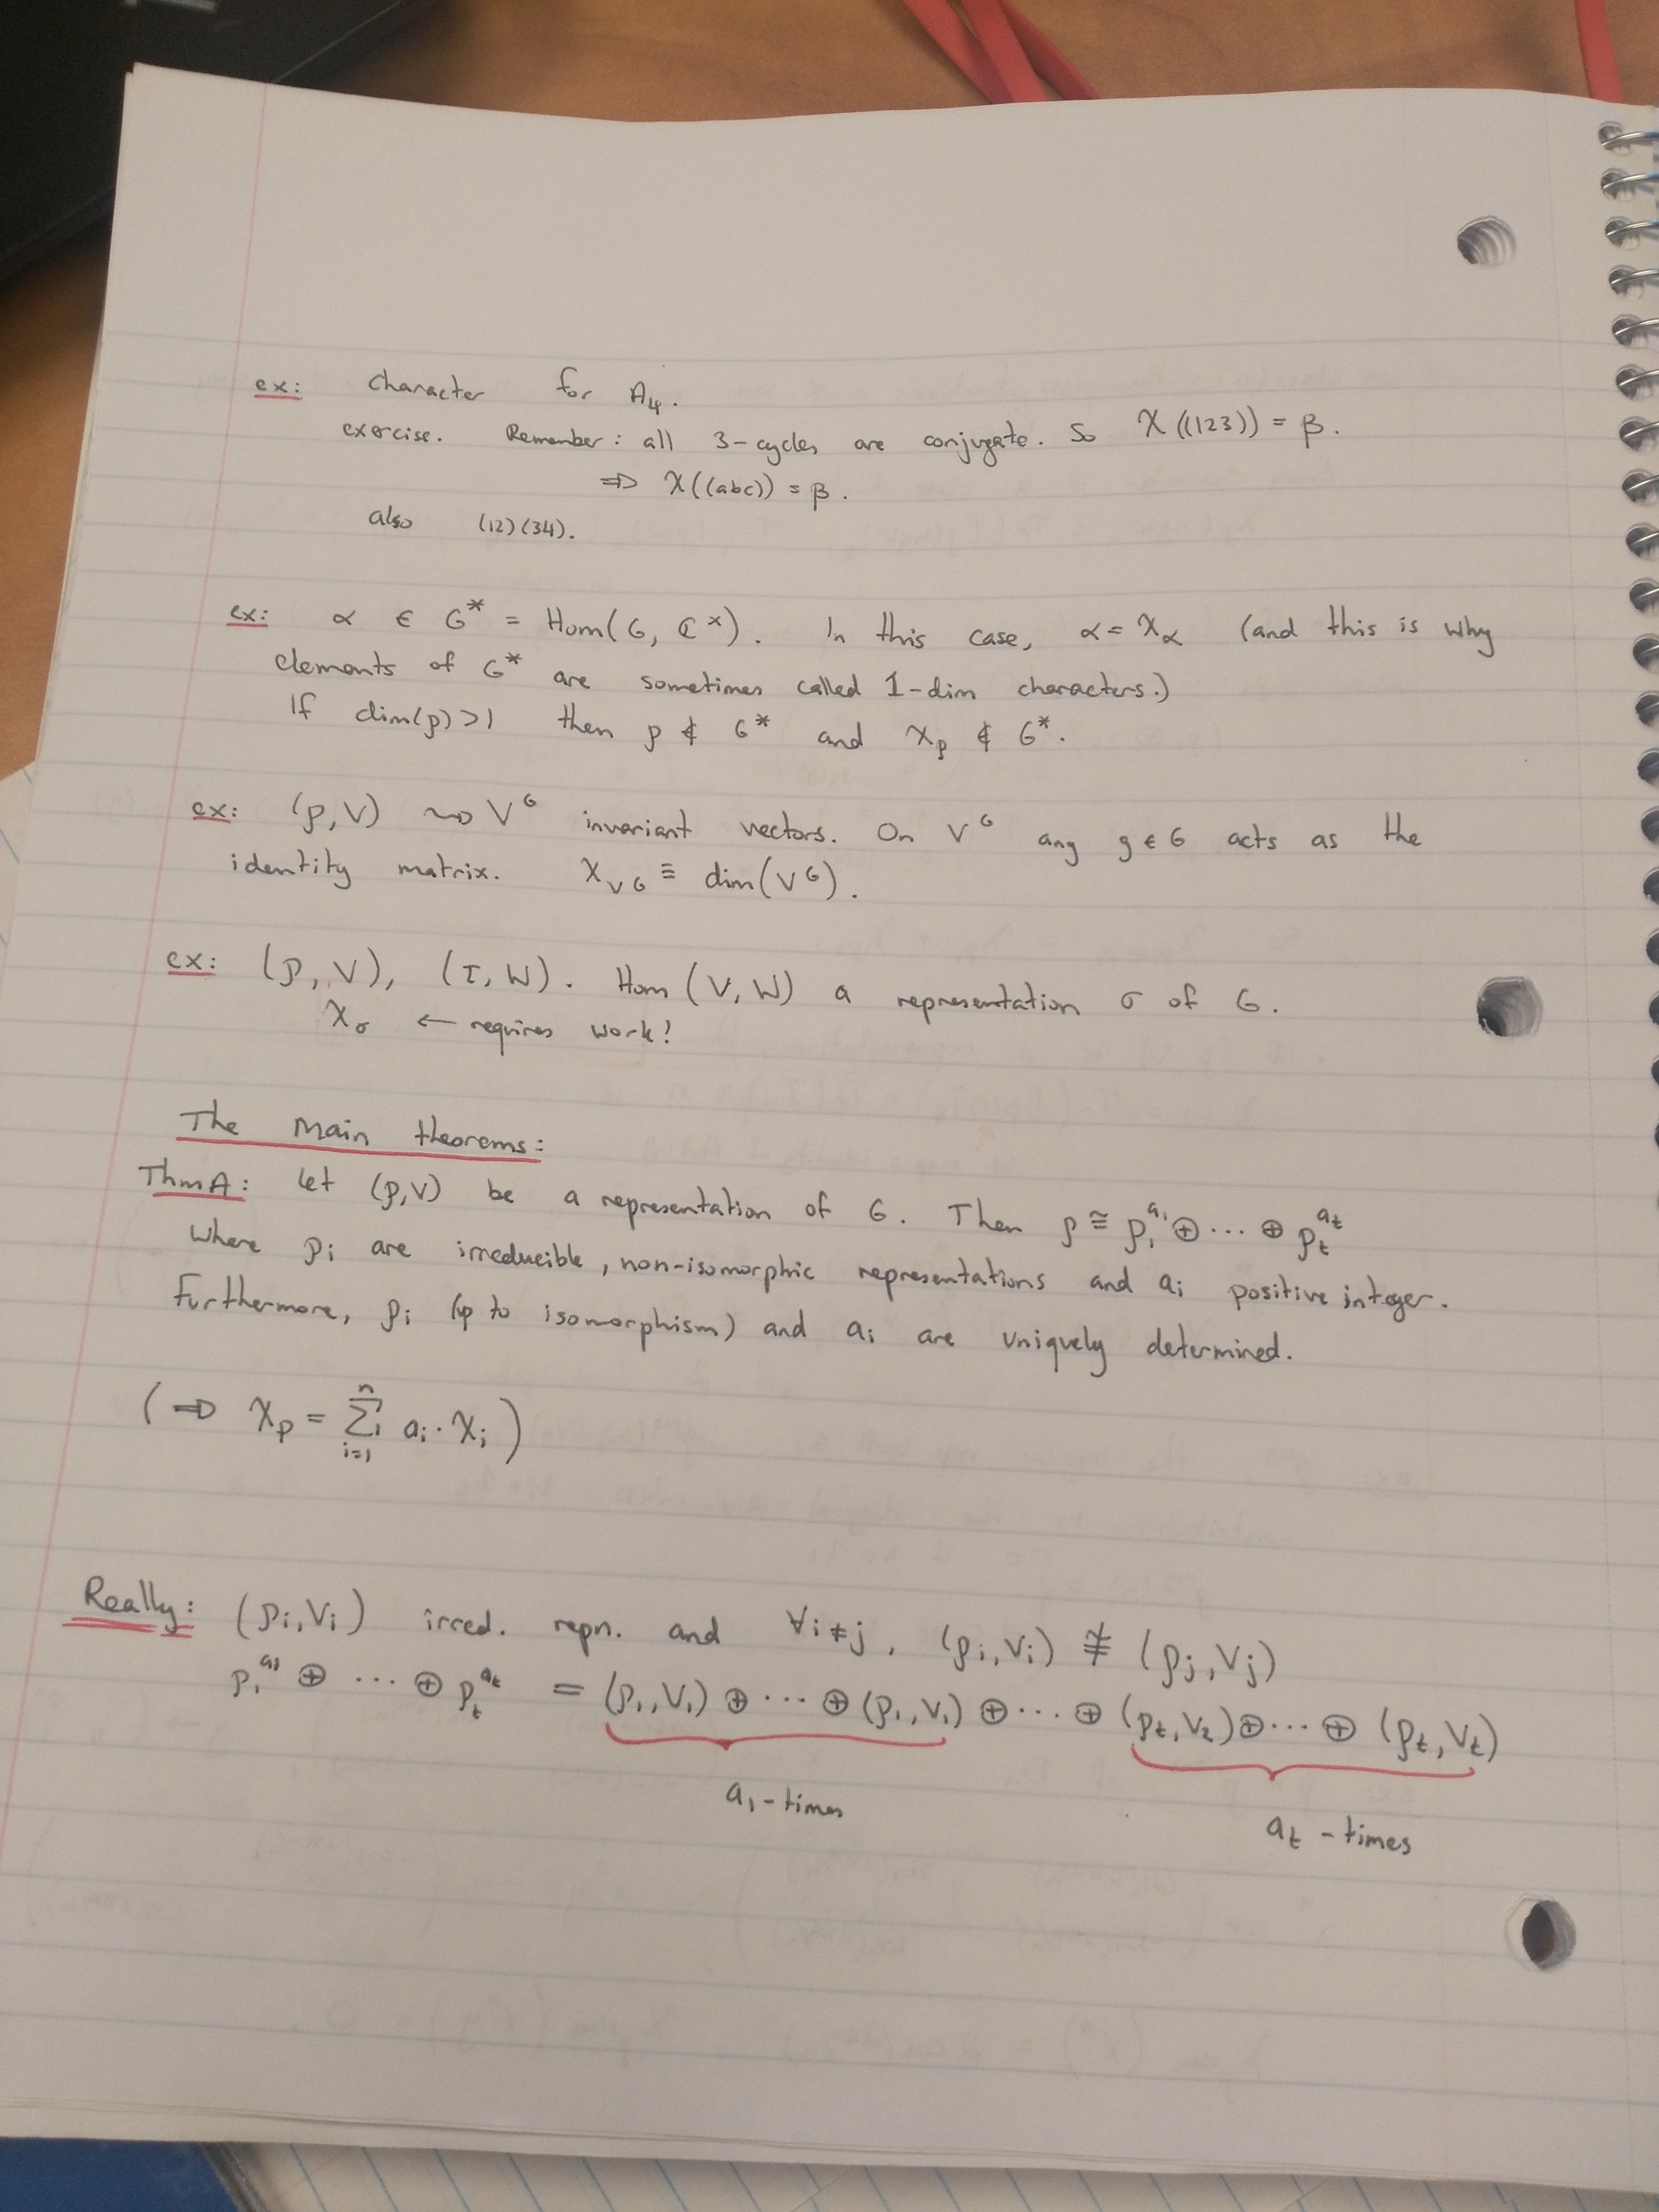 ex: Character for A₄.
exercise. Remember: all 3-cycles are conjugate. So χ((123)) = β.
⇒ χ((abc)) = β.
also (12)(34).
ex: α ∈ G* = Hom(G, ℂ^×). In this case, α = χ_α (and this is why
elements of G* are sometimes called 1-dim characters.)
If dim(ρ) > 1 then ρ ∉ G* and χ_ρ ∉ G*.
ex: (ρ, V) ⇝ V^G invariant vectors. On V^G any g ∈ G acts as the
identity matrix. χ_{V^G} ≡ dim(V^G).
ex: (ρ, V), (τ, W). Hom(V, W) a representation σ of G.
χ_σ ← requires work!
The Main theorems:
Thm A: Let (ρ, V) be a representation of G. Then ρ ≅ ρ₁^{a₁} ⊕ ··· ⊕ ρ_t^{a_t}
where ρᵢ are irreducible, non-isomorphic representations and aᵢ positive integer.
Furthermore, ρᵢ (up to isomorphism) and aᵢ are uniquely determined.
(⇒ χ_ρ = Σ_{i=1}^{n} aᵢ · χᵢ)
Really: (ρᵢ, Vᵢ) irred. repn. and ∀ i ≠ j, (ρᵢ, Vᵢ) ≇ (ρⱼ, Vⱼ)
ρ₁^{a₁} ⊕ ··· ⊕ ρ_t^{a_t} = (ρ₁, V₁) ⊕ ··· ⊕ (ρ₁, V₁) ⊕ ··· ⊕ (ρ_t, V₂) ⊕ ··· ⊕ (ρ_t, V_t)
a₁-times a_t-times